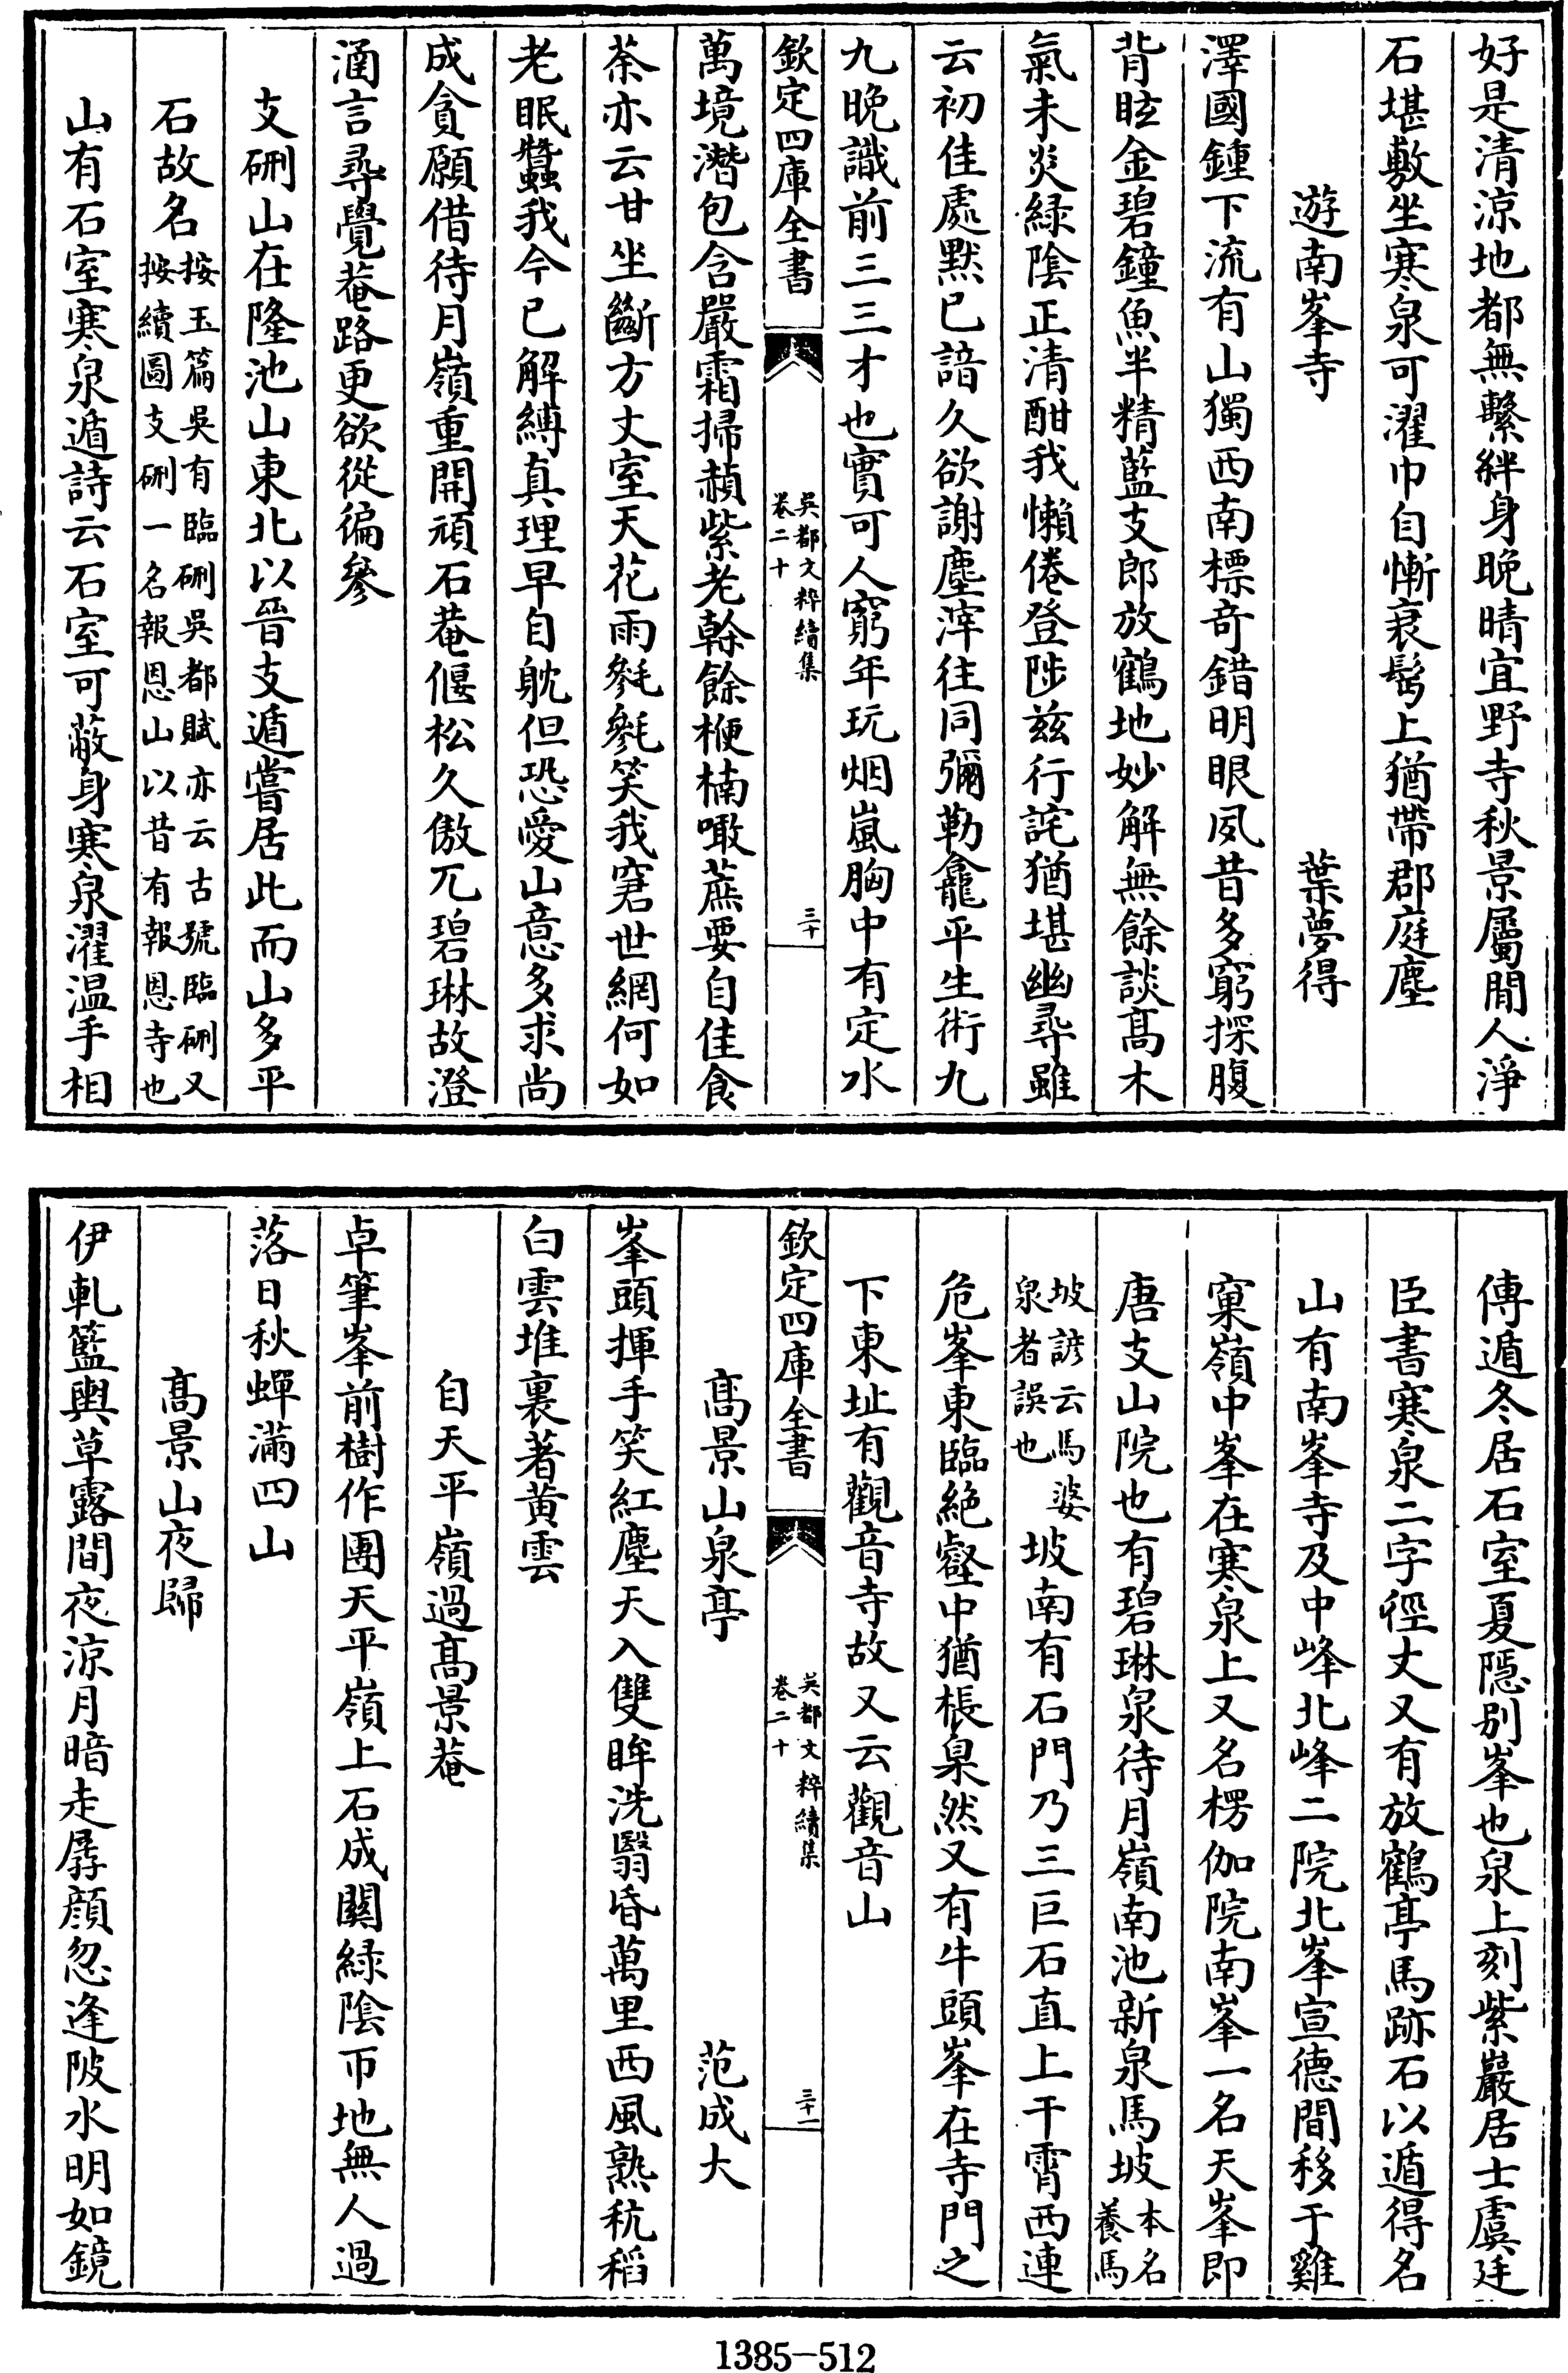 好是清涼地都無繫絆身晚晴宜野寺秋景屬閒人淨
石堪敷坐寒泉可濯巾自慚衰鬂上猶帶郡庭塵
遊南峯寺　葉夢得
澤國鍾下流有山獨西南標奇錯明眼夙昔多窮探腹
背眩金碧鐘魚半精藍支郎放鶴地妙解無餘談髙木
氣未炎緑陰正清酣我懶倦登陟兹行詫猶堪幽尋雖
云初佳處默已諳久欲謝塵滓往同彌勒龕平生術九
九晚識前三三才也實可人窮年玩烟嵐胸中有定水
欽定四庫全書　吳都文粹續集　卷二十　三十
萬境潛包含嚴霜掃赬紫老榦餘楩楠噉蔗要自佳食
荼亦云甘坐斷方丈室天花雨毿毿笑我窘世網何如
老眠蠶我今已解縛真理早自躭但恐愛山意多求尚
成貪願借待月嶺重開頑石菴偃松久傲兀碧琳故澄
涵言尋覺菴路更欲從徧參
支硎山在隆池山東北以晉支遁嘗居此而山多平
石故名按玉篇吳有臨硎吳都賦亦云古號臨硎又
按續圖支硎一名報恩山以昔有報恩寺也
山有石室寒泉遁詩云石室可蔽身寒泉濯温手相
傳遁冬居石室夏隱别峯也泉上刻紫巖居士虞廷
臣書寒泉二字徑丈又有放鶴亭馬跡石以遁得名
山有南峯寺及中峰北峰二院北峯宣德間移于雞
窠嶺中峯在寒泉上又名楞伽院南峯一名天峯即
唐支山院也有碧琳泉待月嶺南池新泉馬坡本名
養馬
坡諺云馬婆
泉者誤也
坡南有石門乃三巨石直上干霄西連
危峯東臨絶壑中猶棖臬然又有牛頭峯在寺門之
下東址有觀音寺故又云觀音山
欽定四庫全書　吳都文粹續集　卷二十　三十一
髙景山泉亭　范成大
峯頭揮手笑紅塵天入雙眸洗翳昏萬里西風熟秔稻
白雲堆裏著黄雲
自天平嶺過髙景菴
卓筆峯前樹作團天平嶺上石成關緑陰帀地無人過
落日秋蟬滿四山
髙景山夜歸
伊軋籃輿草露間夜凉月暗走孱顔忽逢陂水明如鏡
1385—512